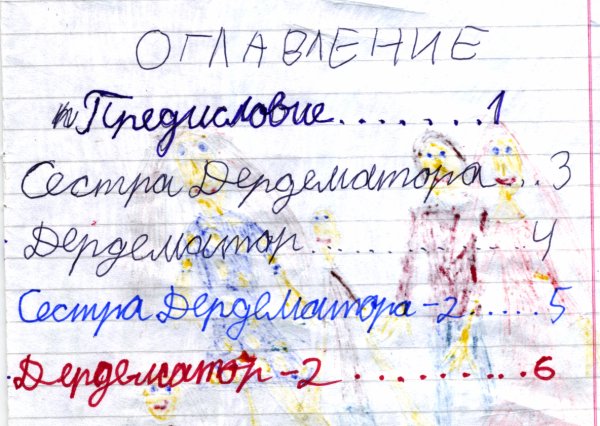 ОГЛАВЛЕНИЕ
Предисловие.......1
Сестра Дердематора...3
Дердематор..............4
Сестра Дердематора-2.....5
Дердематор-2..........6